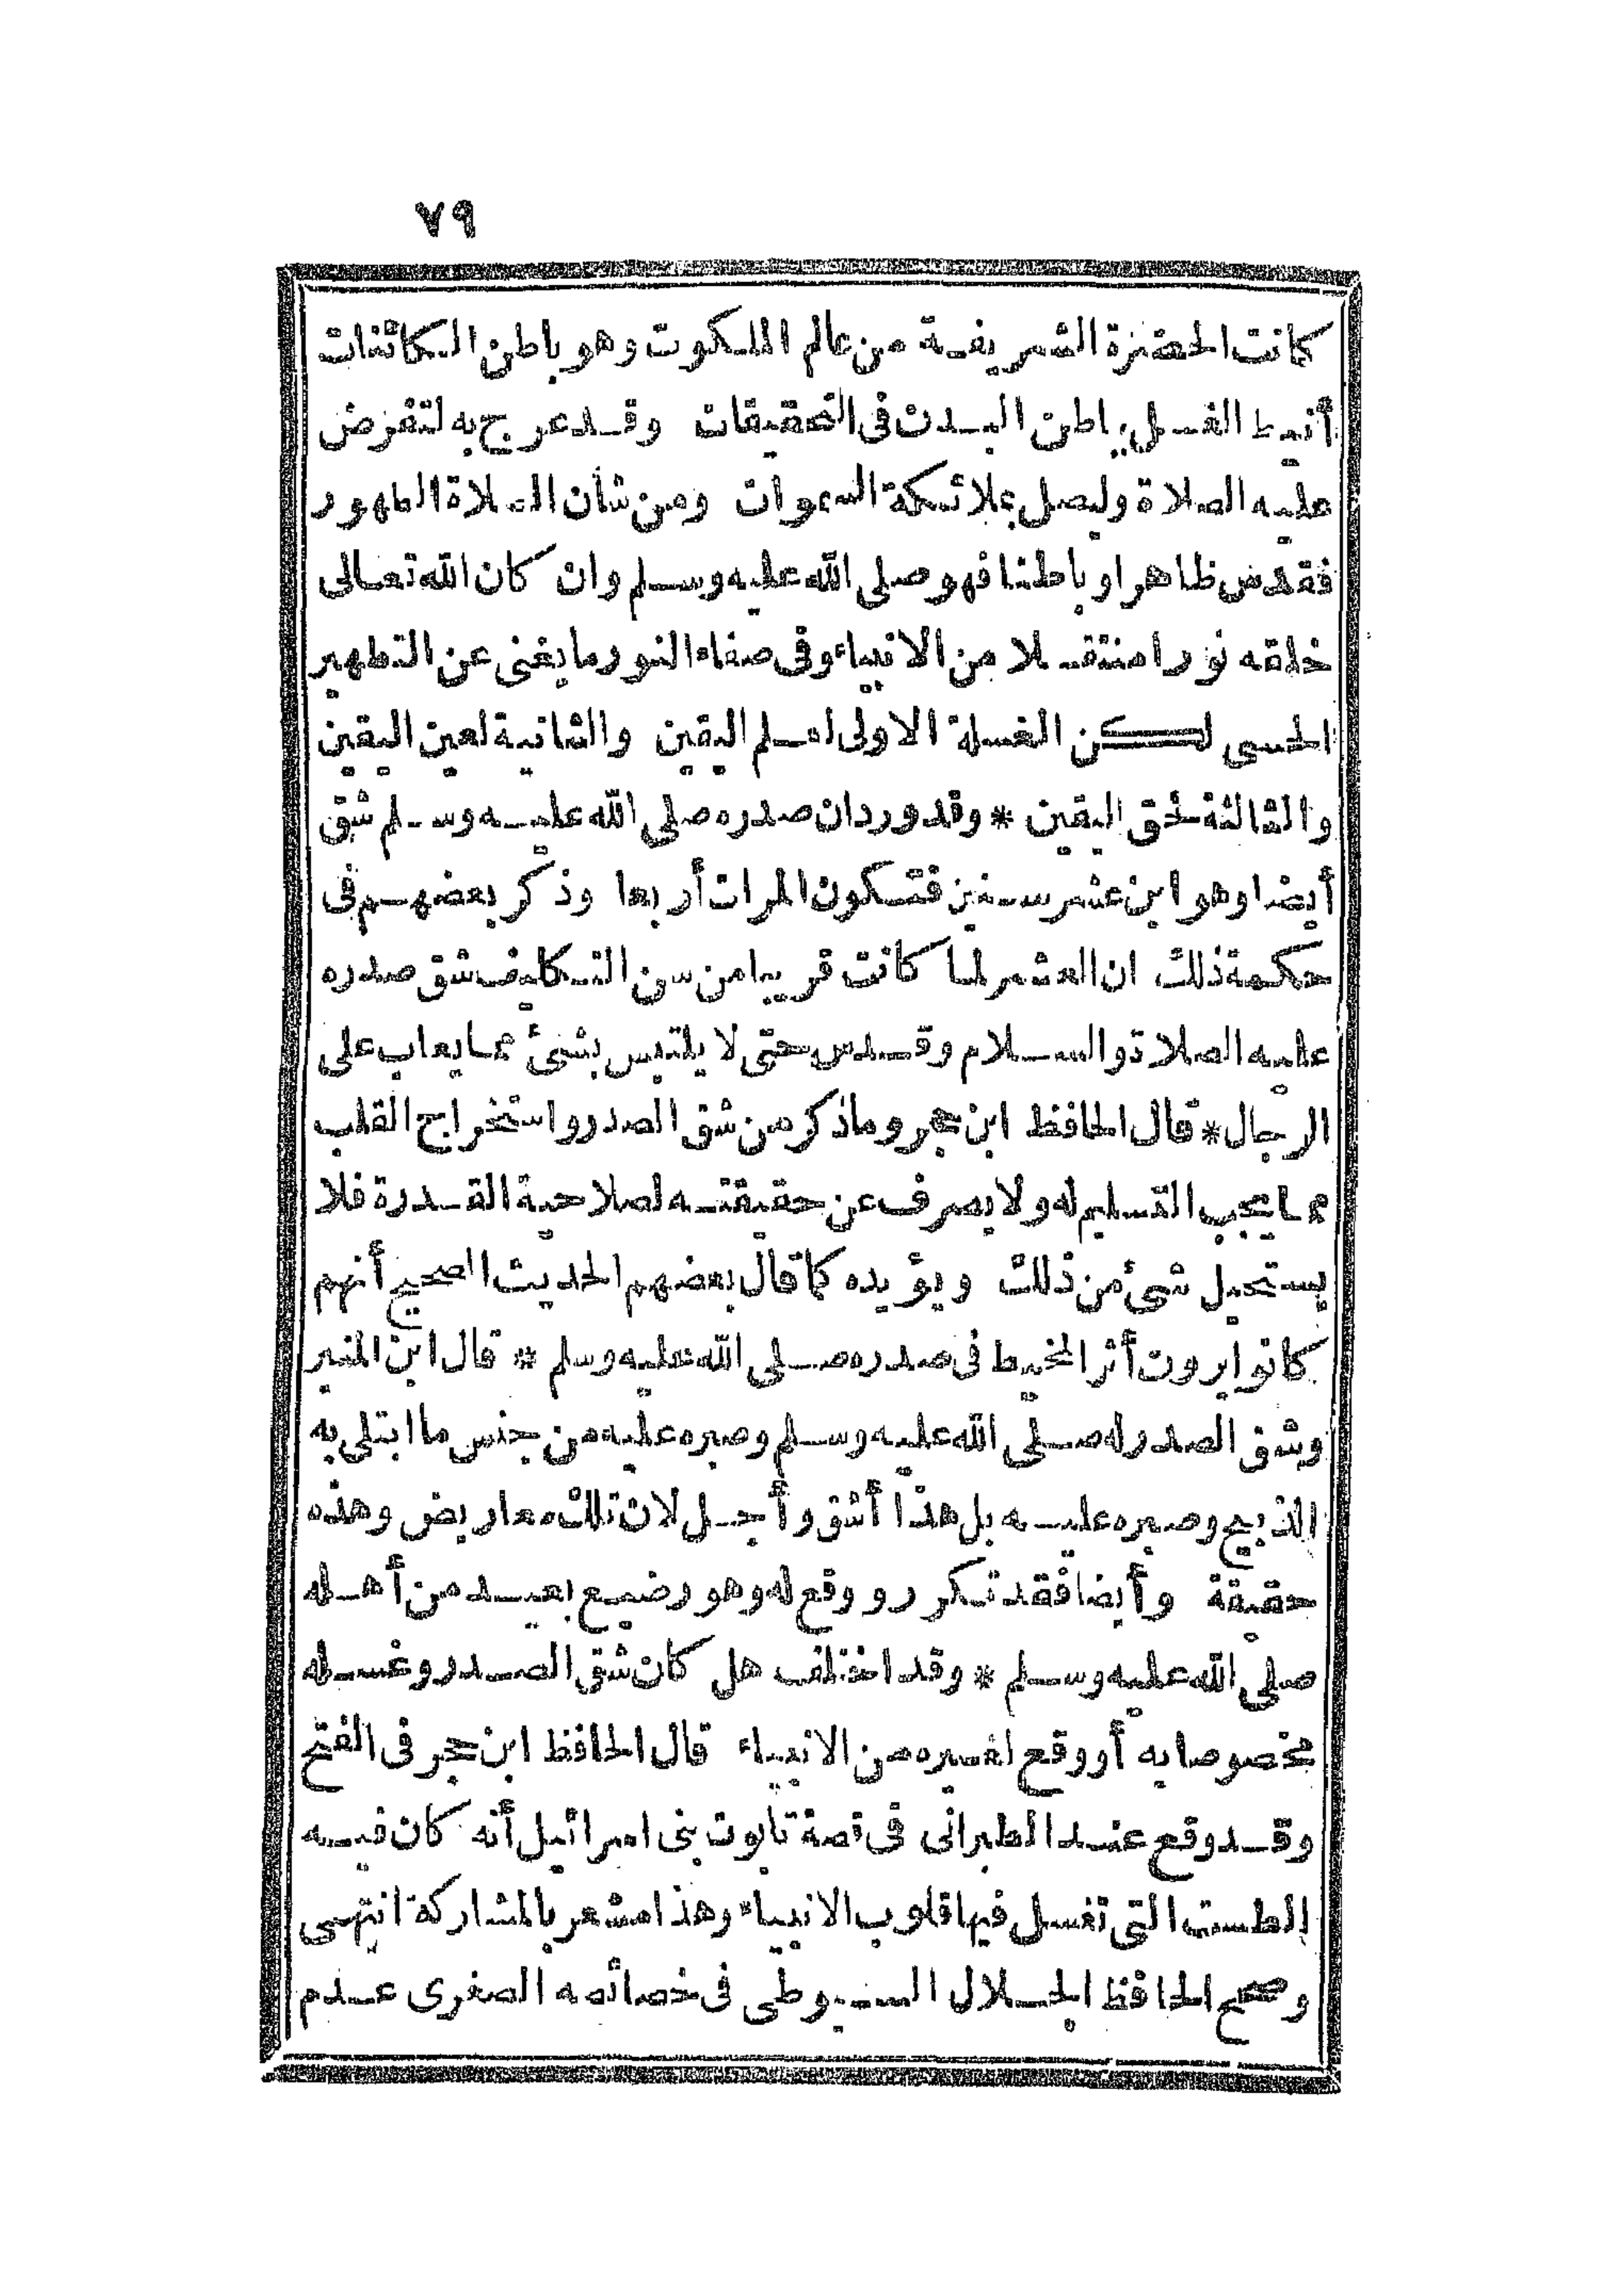 ٧٩
كانت الحضرة الشريفة من عالم الملكوت وهو باطن الكائنات
أنيط الغسل بباطن البدن فى التحقيقات وقد عرج به لتفرض
عليه الصلاة وليصل بملائكة السموات ومن شأن الصلاة الطهور
فقدس ظاهرا وباطنا فهو صلى الله عليه وسلم وان كان الله تعالى
خلقه نورا منتقلا من الانبياء وفى صفاء النور ما يغنى عن التطهير
الحسى لكن الغسلة الاولى لعلم اليقين والثانية لعين اليقين
والثالثة لحق اليقين * وقد ورد ان صدره صلى الله عليه وسلم شق
أيضا وهو ابن عشر سنين فتكون المرات أربعا وذكر بعضهم فى
حكمة ذلك ان العشر لما كانت قريبا من سن التكليف شق صدره
عليه الصلاة والسلام وقدس حتى لا يلتبس بشئ مما يعاب على
الرجال * قال الحافظ ابن حجر وما ذكر من شق الصدر واستخراج القلب
مما يجب التسليم له ولا يصرف عن حقيقته لصلاحية القدرة فلا
يستحيل شئ من ذلك ويؤيده كما قال بعضهم الحديث الصحيح أنهم
كانوا يرون أثر المخيط فى صدره صلى الله عليه وسلم * قال ابن المنير
وشق الصدر له صلى الله عليه وسلم وصبره عليه من جنس ما ابتلى به
الذبيح وصبره عليه بل هذا أشق وأجل لان تلك معاريض وهذه
حقيقة وأيضا فقد تكرر ووقع له وهو رضيع بعيد من أهله
صلى الله عليه وسلم * وقد اختلف هل كان شق الصدر وغسله
مخصوصا به أو وقع لغيره من الانبياء قال الحافظ ابن حجر فى الفتح
وقد وقع عند الطبرانى فى قصة تابوت بنى اسرائيل أنه كان فيه
الطست التى تغسل فيها قلوب الانبياء وهذا مشعر بالمشاركة انتهى
وصحح الحافظ الجلال السيوطى فى خصائصه الصغرى عدم